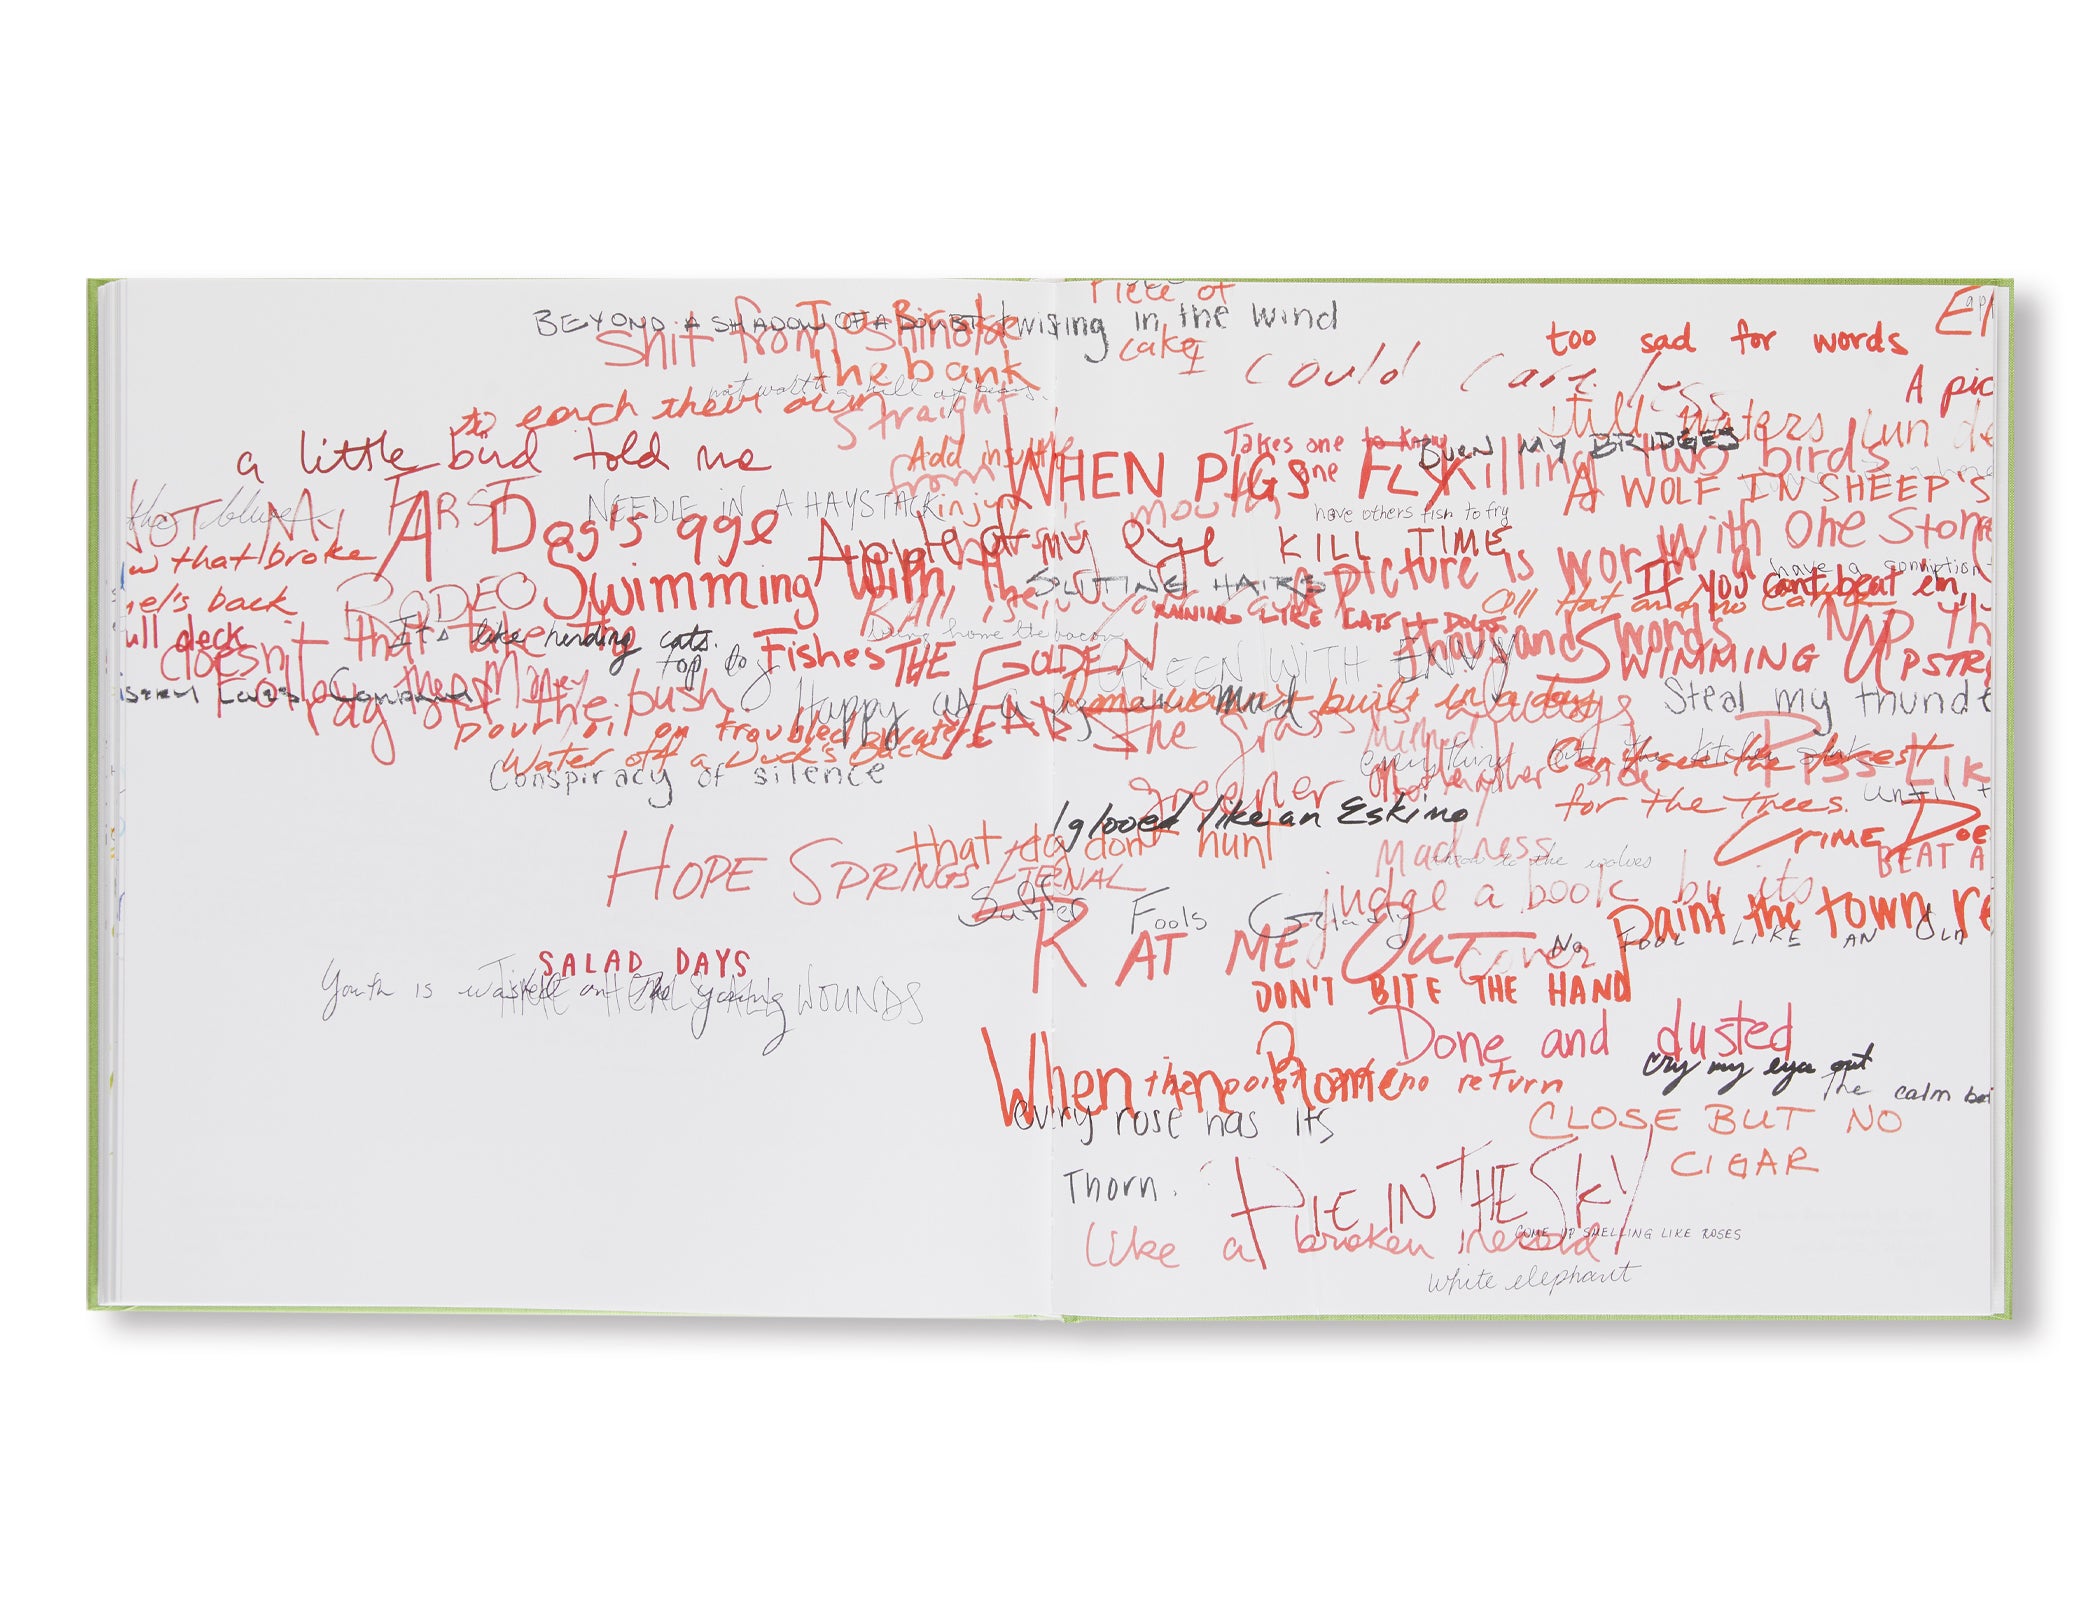 Piece of
cake
BEYOND A SHADOW OF A DOUBT
twisting in the wind
Shit from Shinola
the bank
too sad for words
I could care less
not worth a hill of beans.
to each their own
A pic
straight
from
mouth
Still waters run de
a little bird told me
Add insult
injury
Takes one to know
one
BURN MY BRIDGES
WHEN PIGS FLY
Killing two birds
with one stone
A WOLF IN SHEEP'S
the blue
NOT MY FIRST
RODEO
NEEDLE IN A HAYSTACK
have others fish to fry
A Dog's age
Apple of my eye
KILL TIME
w that broke
el's back
a picture is worth a
thousand words
Swimming with the
Fishes
SPLITTING HAIRS
have a conniption
If you can't beat em,
RAINING LIKE CATS + DOGS
all hat and no cattle
ull deck
doesn't that take the
It's like herding cats.
bring home the bacon
THE GOLDEN
YEARS
GREEN WITH ENVY
SWIMMING UPSTR
top to
Misery Loves Company
Follow the money
the push
Happy as a
Rome wasn't built in a day
Steal my thund
pour oil on troubled waters
the grass is always
greener on the other side
Water off a Duck's Back
Conspiracy of silence
everything but the kitchen sink
Can't see the forest
for the trees.
PISS LIK
until
I gloved like an Eskimo
that dog don't hunt
CRIME DOE
BEAT A
HOPE SPRINGS ETERNAL
Madness
throw to the wolves
judge a book by its
cover
Suffer Fools Gladly
paint the town re
NO FOOL LIKE AN OLD
RAT ME OUT
SALAD DAYS
Youth is wasted on the young
TIME HEALS ALL WOUNDS
DON'T BITE THE HAND
Done and dusted
When in Rome
the point of no return
cry my eyes out
The calm be
every rose has its
Thorn.
CLOSE BUT NO
CIGAR
PIE IN THE SKY
COME UP SMELLING LIKE ROSES
Like a broken record
white elephant